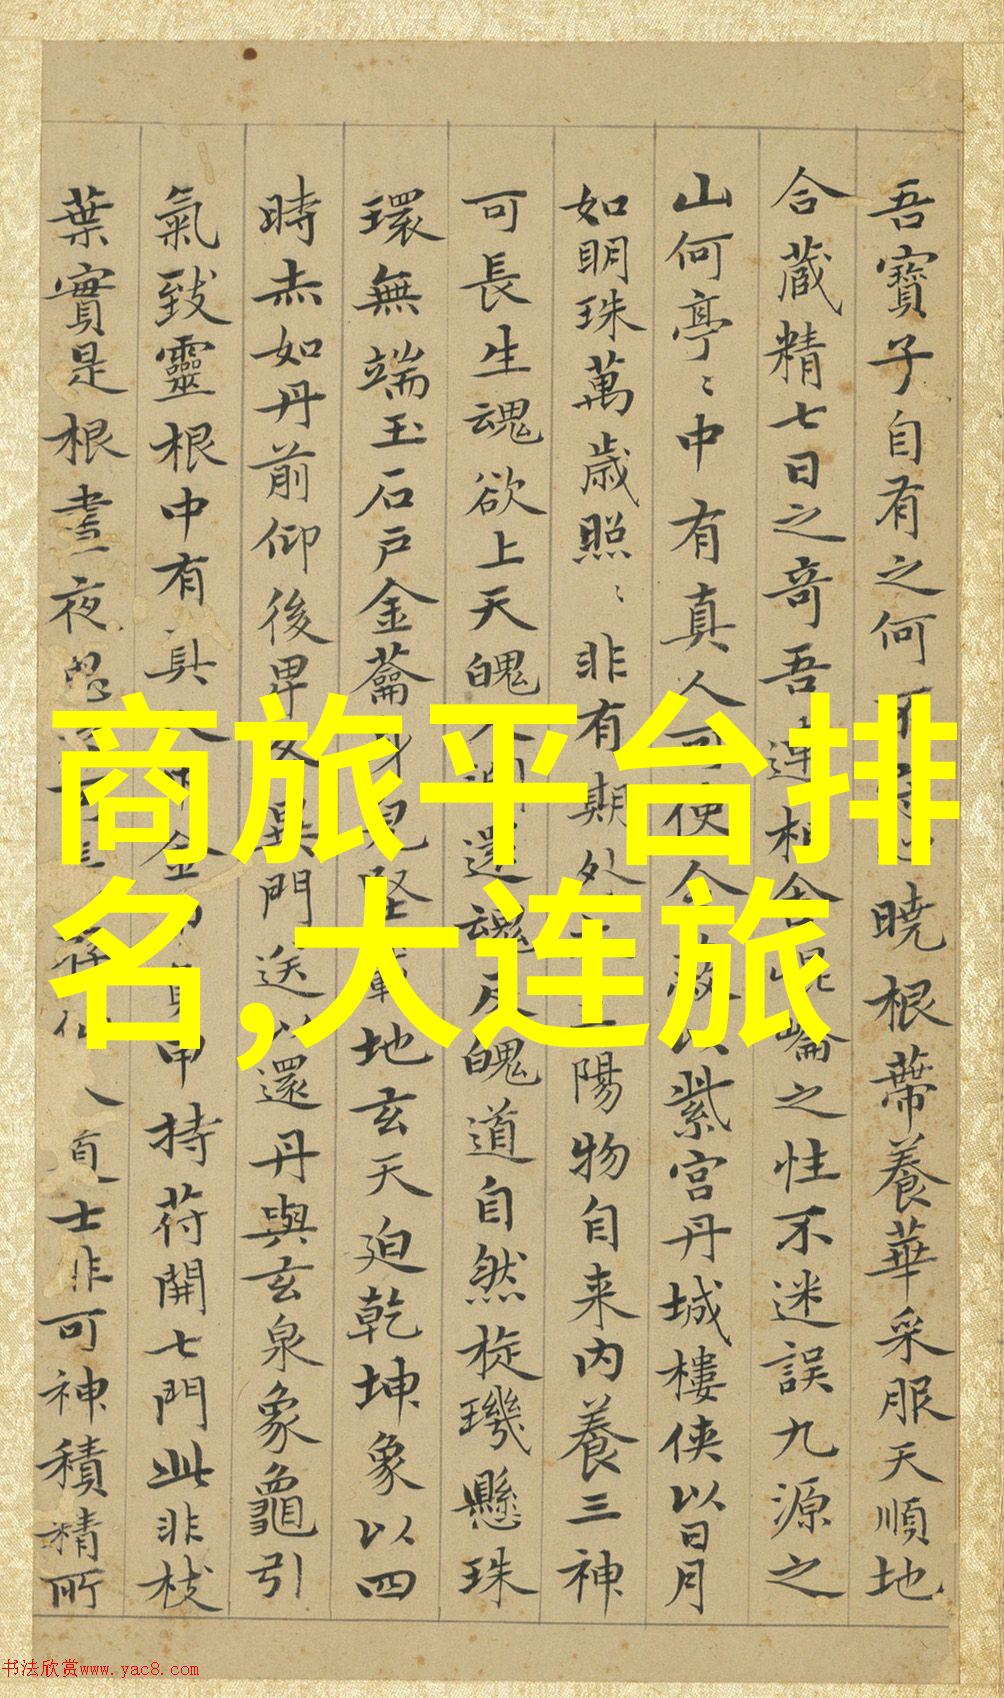 吾寶子自有之何不曉根蒂養華采服天順地
合藏精七日之奇吾連相舍崐崘之性不迷誤九源之
山何亭〻中有真人可使令紫宮丹城樓俠以日月
如明珠萬歲照〻非有期外陽物自来内養三神
可長生魂欲上天魄還魂反魄道自然旋璣懸珠
環無端玉石戶金籥身見堅地玄天迫乾坤象以四
時赤如丹前仰後卑門送以還丹與玄泉象龜引
氣致靈根中有真金持苻開七門此非枝
葉實是根晝夜士非可神積精所
商旅平台排
名,大连旅
书法欣赏www.yac8.com